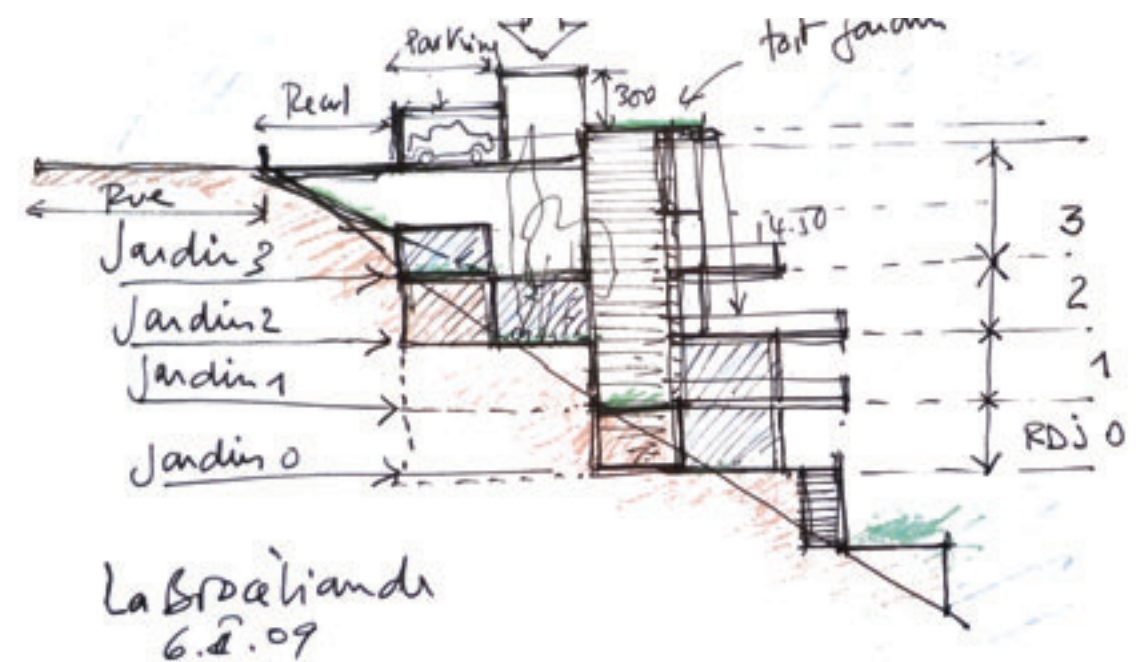 Parking
toit jardin
Recul
300
Rue
14.50
3
Jardin 3
2
Jardin 2
1
Jardin 1
RDJ 0
Jardin 0
La Brocéliande
6.I.09